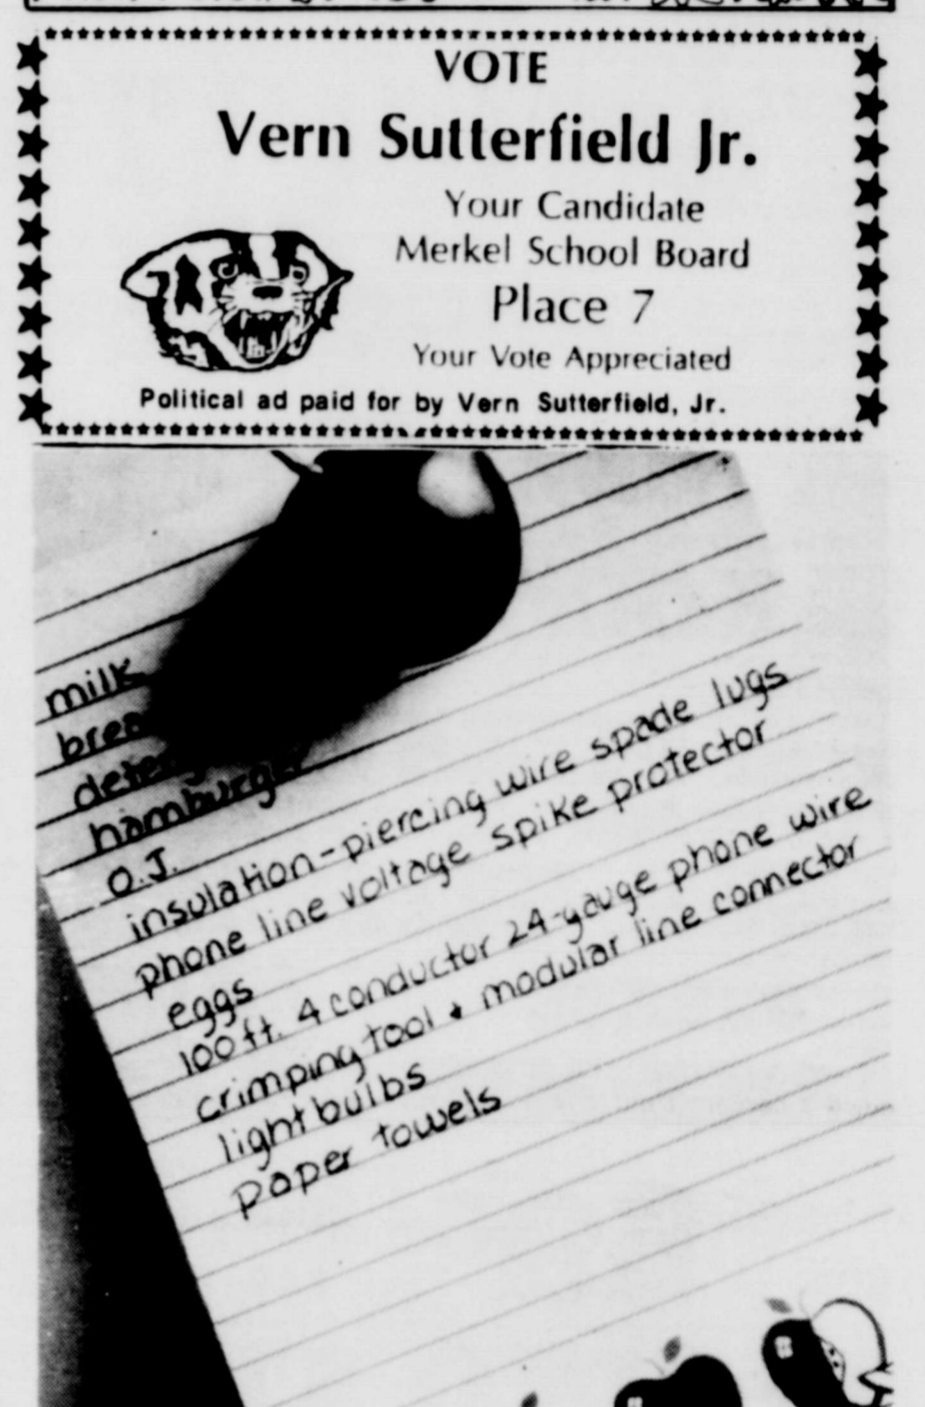 VOTE
Vern Sutterfield Jr.
Your Candidate
Merkel School Board
Place 7
Your Vote Appreciated
Political ad paid for by Vern Sutterfield, Jr.
milk
hamburger
O.J.
insulation-piercing wire spade lugs
phone line voltage spike protector
eggs
100 ft. 4 conductor 24-gauge phone wire
crimping tool + modular line connector
light bulbs
paper towels